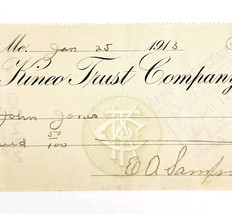 Me. Jan 25 1913
Kineo Trust Company
John Jones
50/100
E A Samp